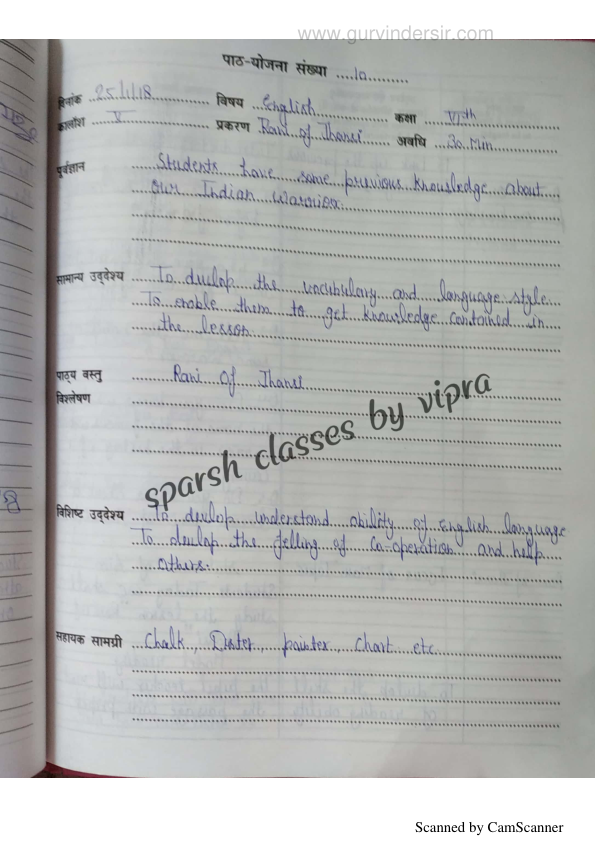 www.gurvindersir.com
पाठ-योजना संख्या ....10.........
दिनांक 25/1/18 विषय English कक्षा VIth
कालॉंश V प्रकरण Rani of Jhansi अवधि 30 Min
पूर्वज्ञान Students have some previous knowledge about
our Indian warrior.
सामान्य उद्‌देश्य To dvelop the vocubulary and language style
To enable them to get knowledge contained in
the lesson
पाठ्य वस्तु Rani of Jhansi
विश्लेषण
sparsh classes by vipra
विशिष्ट उद्‌देश्य To dvelop understand ability of English language
To devlop the felling of co-operation and help
others.
सहायक सामग्री Chalk, Duster, painter, Chart etc.
Scanned by CamScanner